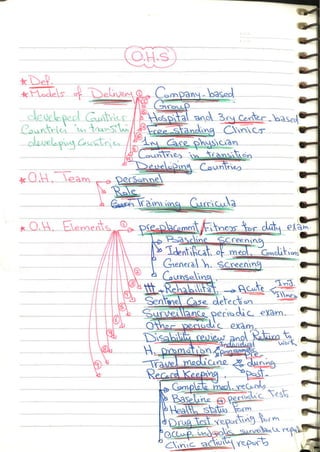 O.H.S
* Def.
* Models of Delivery Company-based
Group
developed Countries Hospital and 3ry Center-based
Countries in transition Free-standing Clinics
developing Countries 1ry Care physician
Countries in transition
Developing Countries
* O.H. Team personnel
Role
Training Curricula
* O.H. Elements ① pre-placement/fitness for duty exam.
Baseline screening
Identificat. of med. Condition
General h. screening
Counseling
ttt → Rehabilitat. → Acute Inj. Illness
Sentinel Case detection
Surveillance periodic exam.
Other periodic exam
Disability review and Return to work
H. promotion individual
Travel medicine pre during post
Record Keeping
Complete med. records
Baseline periodic Test
Health status form
Drug test reporting form
occup. surveillance report
Clinic activity reports